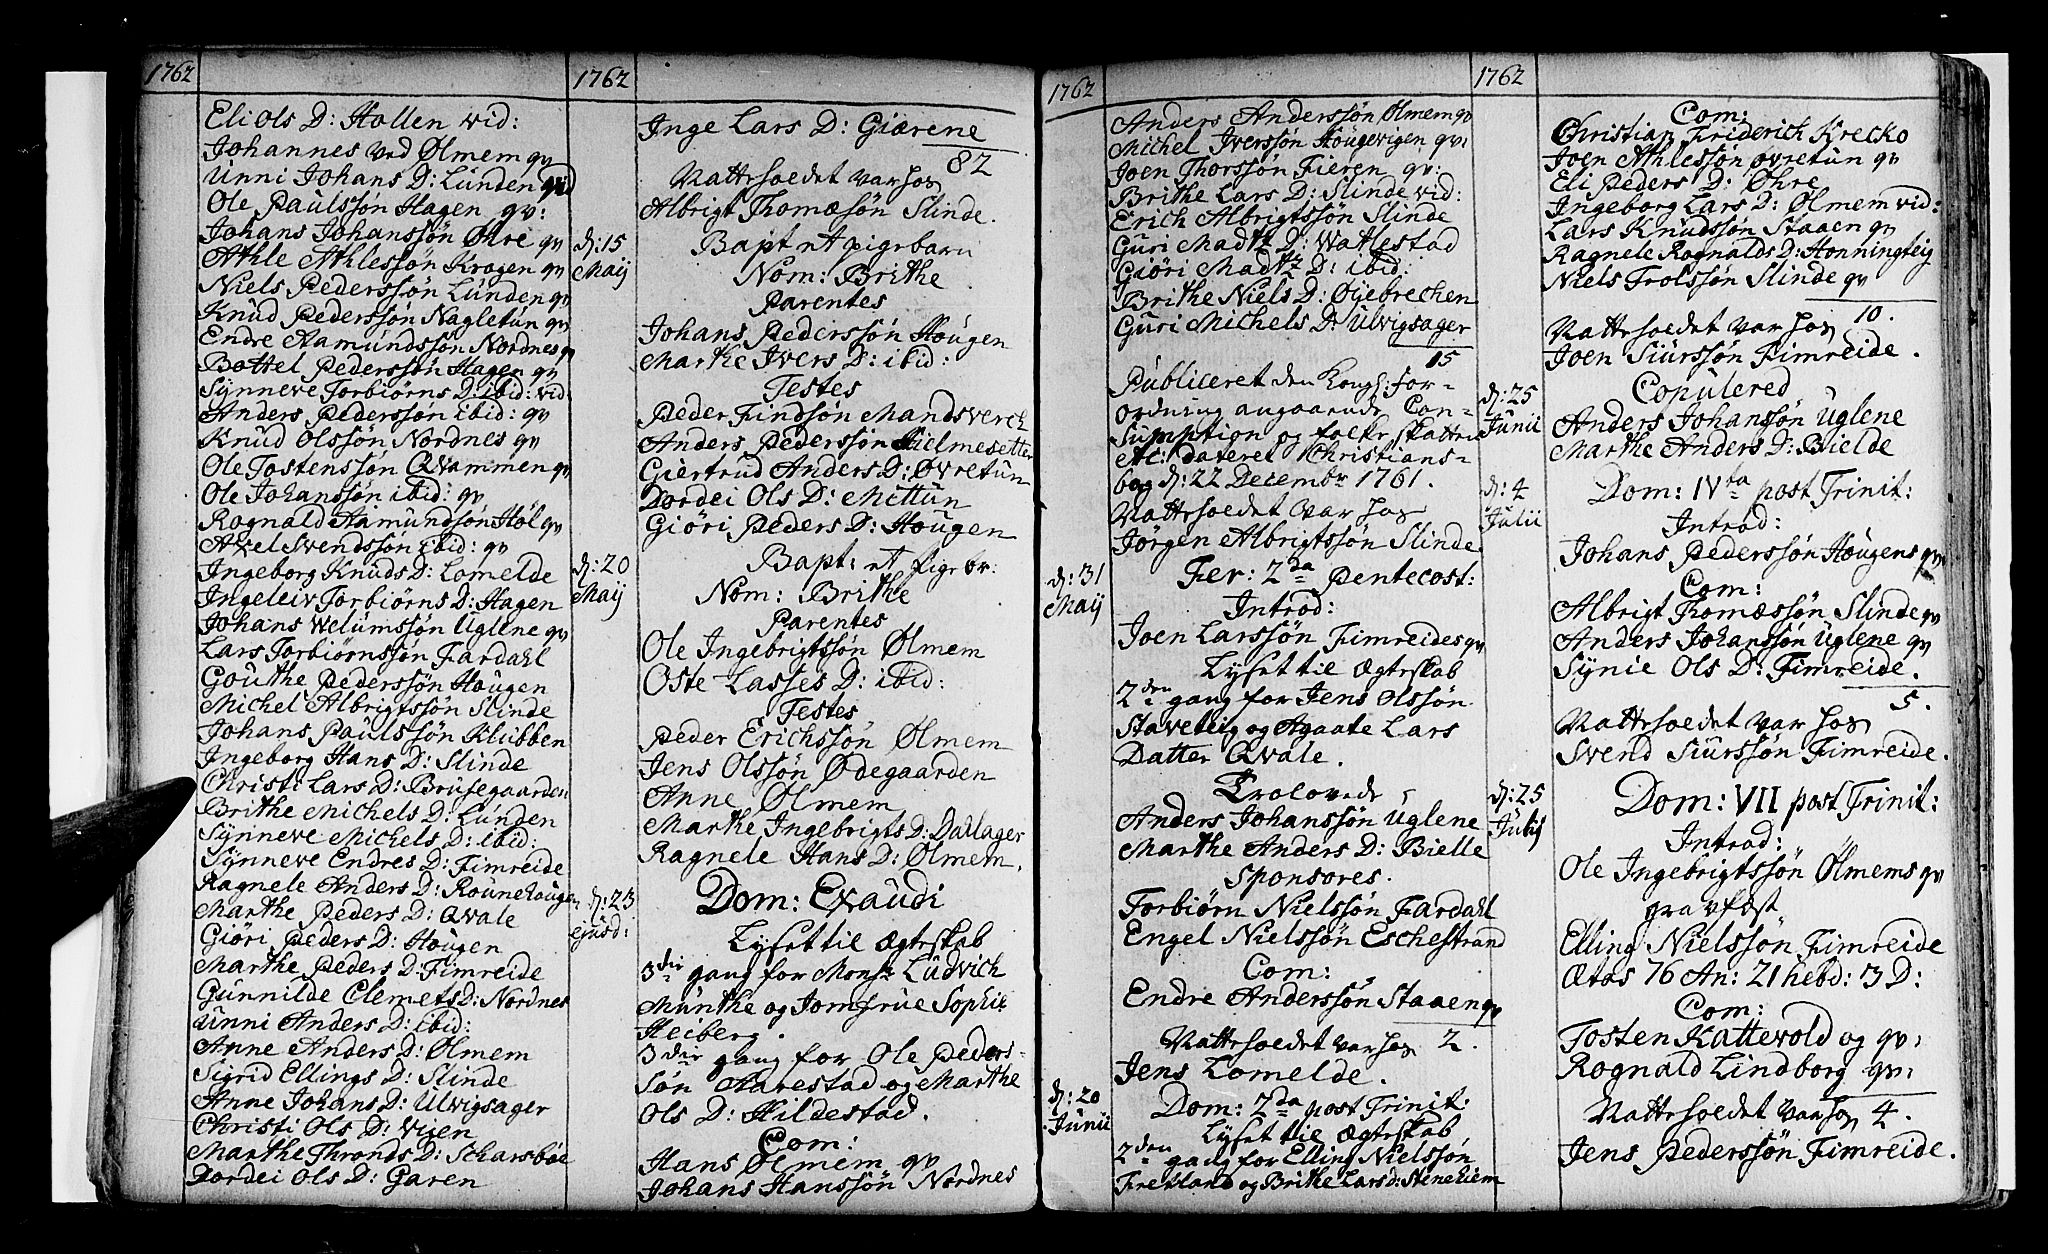 1762
Eli Ols D: Hollen wid:
Johannes ved Ølmem qv
Unni Johans D: Lunden vid
Ole Paulssøn Hagen qv:
Johans Johanssøn Øhre qv
Athle Athlessøn Kragen qv
Niels Pederssøn Lunden qv
Knud Pederssøn Nagletun qv
Endre Aamundssøn Nordnes qv
Bottel Pederssøn Hagen qv
Synneve Torbiørns D: ibid: vid
Anders Pederssøn ibid: qv
Knud Olssøn Nordnes qv
Ole Tostenssøn Qvammen qv
Ole Johanssøn ibid: qv
Rognald Aamundsøn Høl qv
Axel Svendssøn ibid: qv
Ingeborg Knuds D: Lomelde
Ingeleiv Torbiørns D: Hagen
Johans Welumssøn Uglene qv
Lars Torbiørnssøn Fardahl
Gouthe Pederssøn Hougen
Michel Albrigtssøn Slinde
Johans Paulssøn Klubben
Ingeborg Hans D: Slinde
Christi Lars D: Brusegaarden
Brithe Michels D: Lunden
Synneve Michels D: ibid:
Synneve Endres D: Fimreide
Ragnele Anders D: Rounehougen
Marthe Peders D: Qvale
Giøri Peders D: Hougen
Marthe Peders D: Fimreide
Gunnilde Clemets D: Nordnes
Unni Anders D: ibid:
Anne Anders D: Ølmem
Sigrid Ellings D: Slinde
Anne Johans D: Ulvigsager
Christi Ols D: Wiien
Marthe Thronds D: Scharsbøe
Dordei Ols D: Garen
1762
Inge Lars D: Giærene
82
Nattesoedet var hos
Albrigt Thomæsøn Slinde.
d: 15
Maij
Bapt: et pigebarn
Nom: Brithe
Parentes
Johans Pederssøn Hougen
Marthe Ivers D: ibid:
Testes
Peder Findsøn Mandsverck
Anders Pederssøn Hielmesetter
Giertrud Anders D: Øvretun
Dordei Ols D: Mittun
Giøri Peders D: Hougen
d: 20
Maij
Bapt: et pigebr:
Nom: Brithe
Parentes
Ole Ingebrigtssøn Ølmem
Oste Lasses D: ibid:
Testes
Peder Erichssøn Ølmem
Jens Olssøn Ødegaarden
Anne Ølmem
Marthe Ingebrigts D: Dahlager
Ragnele Hans D: Ølmem.
d: 23
ejusd:
Dom: Exaudi
Lyset til Ægteskab
3die gang for Monsr Ludvich
Munthe og Jomfrue Sophie
Heiberg.
3die gang for Ole Peders-
søn Aarestad og Marthe
Ols D: Hildestad.
Com:
Hans Ølmem qv
Johans Hanssøn Nordnes
1762
Anders Anderssøn Ølmem qv
Michel Iverssøn Hougevigen qv:
Joen Thorssøn Fieren qv:
Brithe Lars D: Slinde vid:
Erich Albrigtssøn Slinde
Guri Madtz D: Watlestad
Giøri Madtz D: ibid:
Brithe Niels D: Øyebrechen
Guri Michels D: Ulvigsager
15
Publiceret den Kongl: For-
ordning angaaende Con-
sumption og folke skatten
etc: dateret Christians-
borg d: 22 Decembr 1761.
Nattesoedet var hos
Jørgen Albrigtssøn Slinde.
d: 31
Maij
Fer: 2da Pentecost:
Introd:
Joen Larssøn Fimreides qv
Lyset til Ægteskab
2den gang for Jens Olssøn
Staveteig og Agaate Lars
Datter Qvale.
Trolovede
Anders Johanssøn Uglene
Marthe Anders D: Bielle
Sponsores.
Torbiørn Nielssøn Fardahl
Engel Nielssøn Eschestrand
Com:
Endre Anderssøn Staaen qv
Nattesoedet var hos 2.
Jens Lomelde.
d: 20
Junii
Dom: 2da post Trinit:
Lyset til Ægteskab
2den gang for Elling Nielssøn
Fretland og Brithe Lars D: Stenehiem
1762
Com:
Christian Friderich Krecko
Joen Athlessøn Øvretun qv
Eli Peders D: Øhre
Ingeborg Lars D: Ølmem vid:
Lars Knudssøn Staaen qv
Ragnele Rognalds D: Honningteig
Niels Trolssøn Slinde qv
10.
Nattesoedet var hos
Joen Siurssøn Fimreide.
d: 25
Junii
Copulered
Anders Johanssøn Uglene
Marthe Anders D: Bielde
d: 4
Julii
Dom: IVta post Trinit:
Introd:
Johans Pederssøn Hougens qv
Com:
Albrigt Thomæssøn Slinde qv
Anders Johanssøn Uglene qv
Synie Ols D: Fimreide.
5.
Nattesoedet var hos
Svend Siurssøn Fimreide.
d: 25
Julij
Dom: VII post Trinit:
Introd:
Ole Ingebrigtssøn Ølmems qv
gravfæst
Elling Nielssøn Fimreide
Ætas 76 An: 21 hebd: 3 D:
Com:
Tosten Kattevold og qv:
Rognald Lindborg qv:
Nattesoedet var hos 4.
Jens Pederssøn Fimreide.